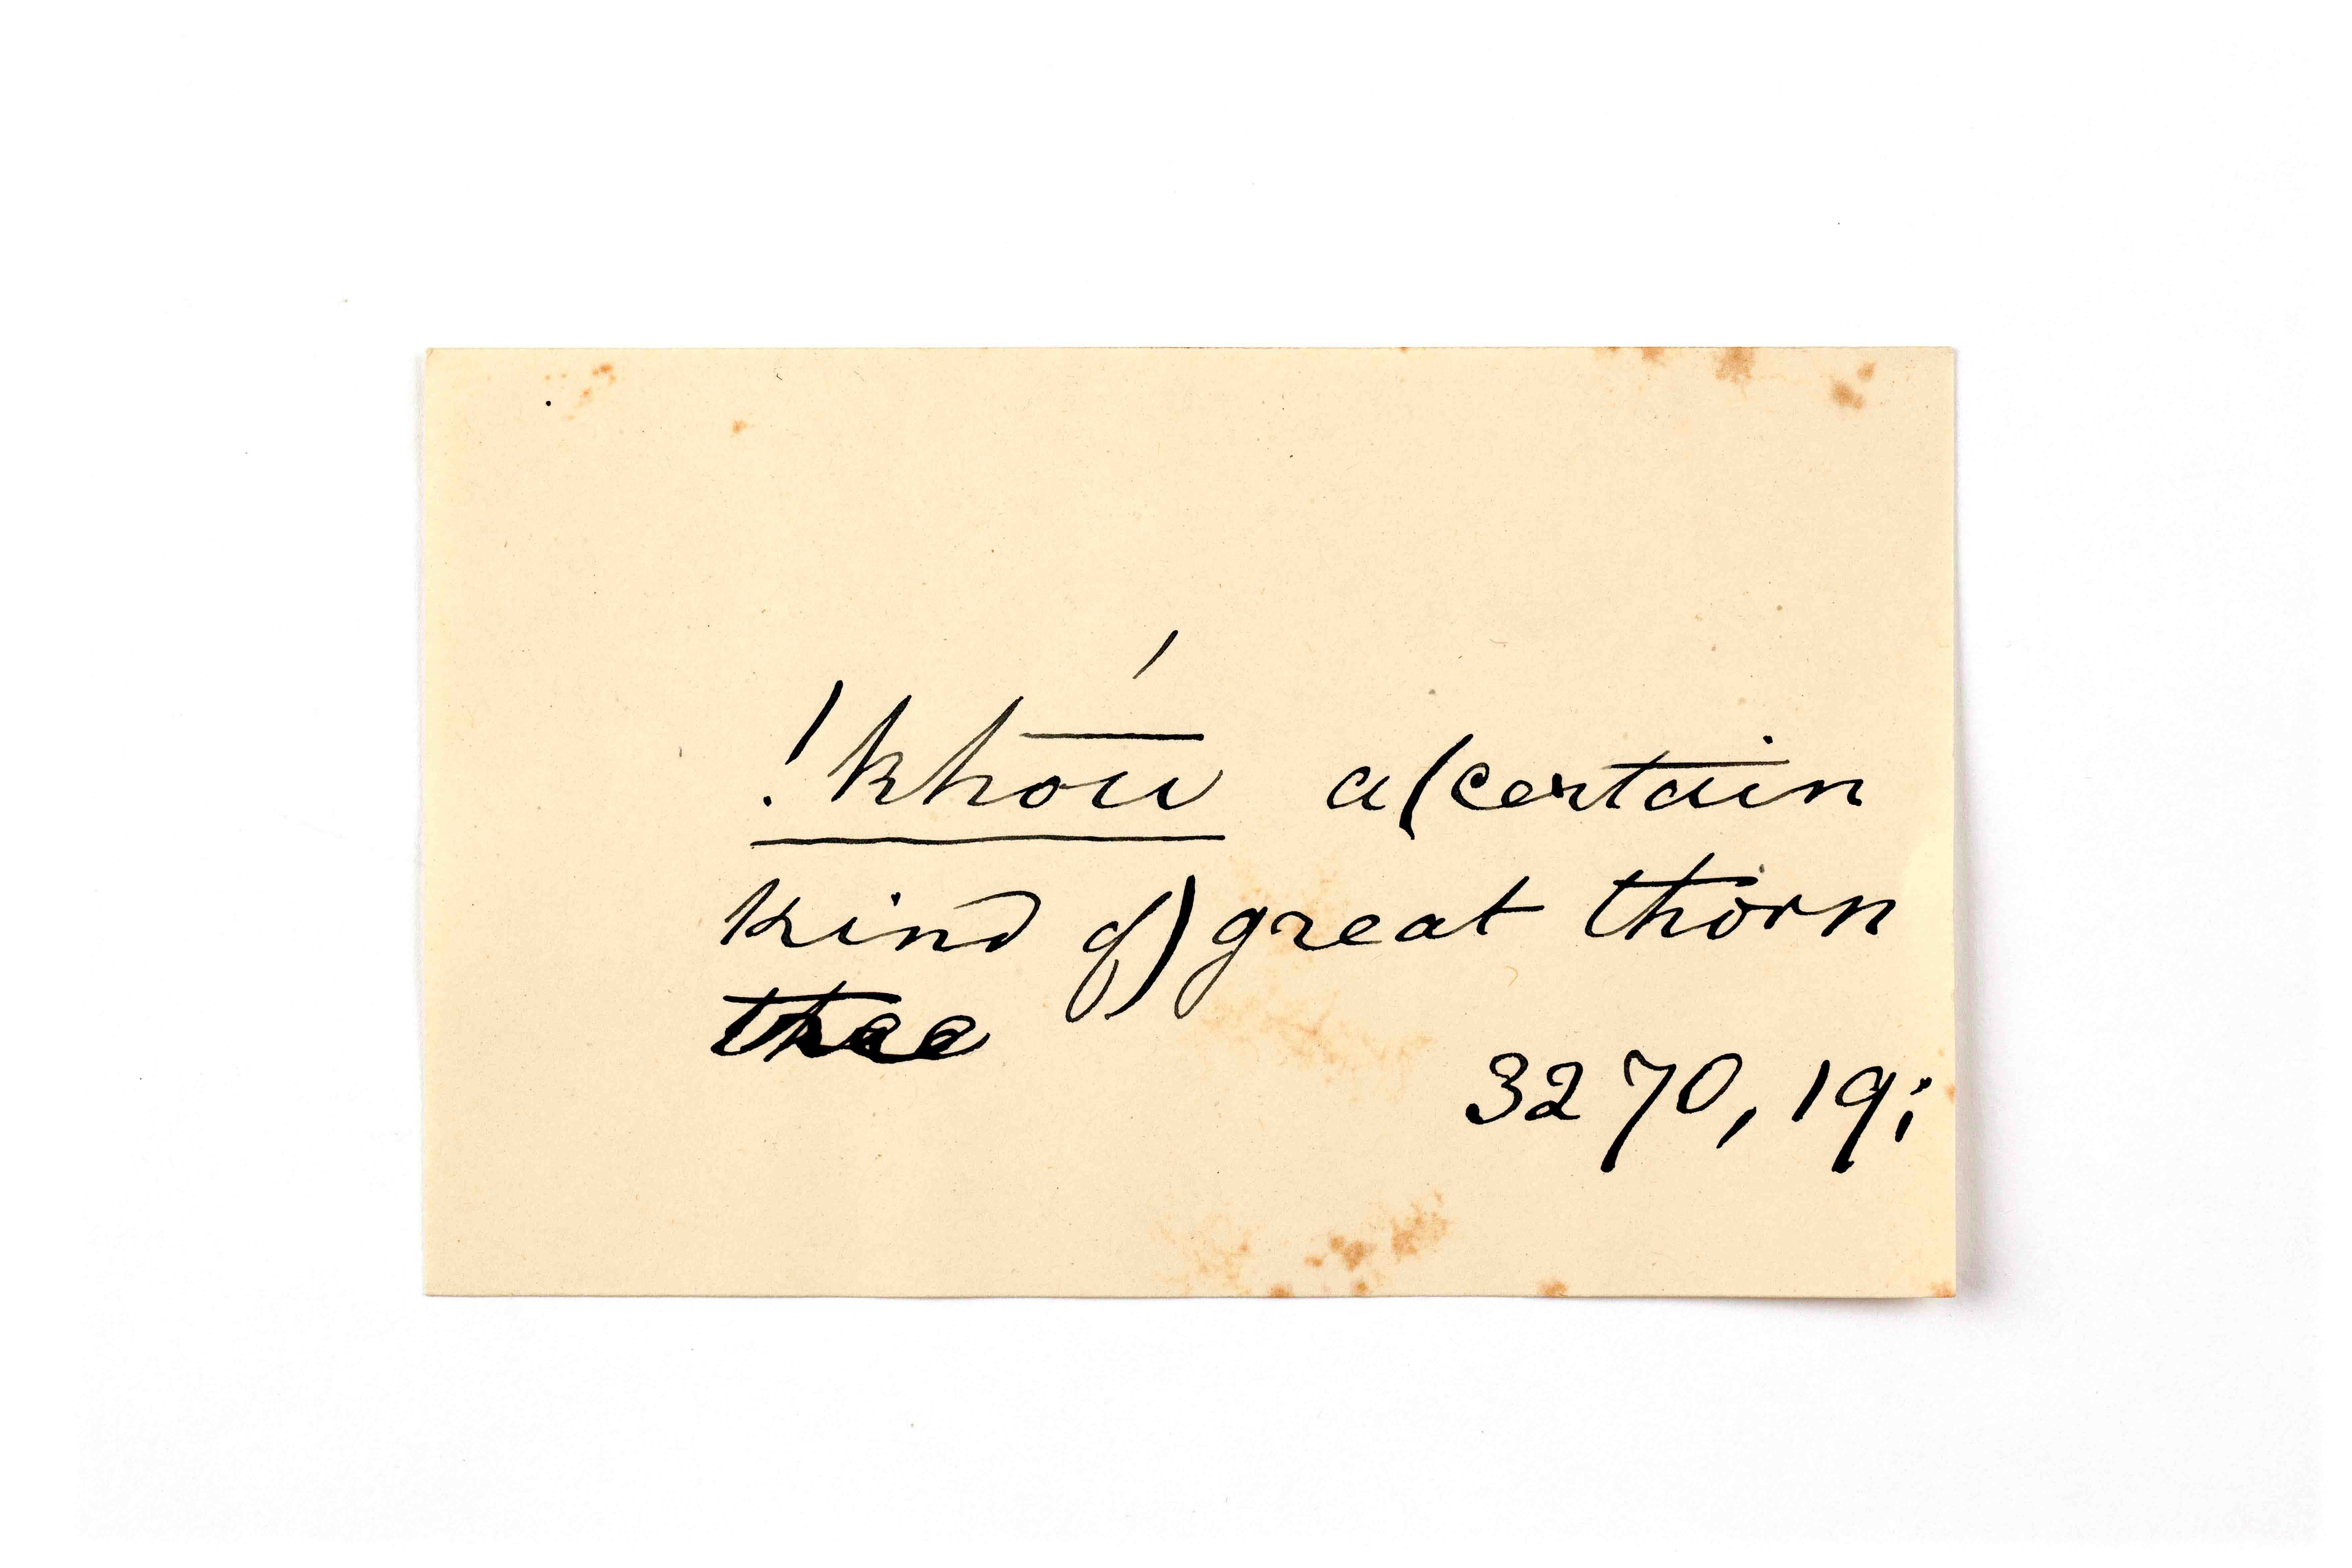 !khou̅́ a (certain
kind of) great thorn
tree
3270, 19;